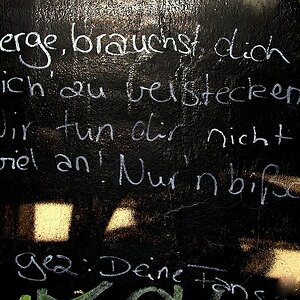 erge, brauchst dich
ich zu verstecken
Wir tun dir nicht
viel an! Nur 'n biße
gez: Deine Fans